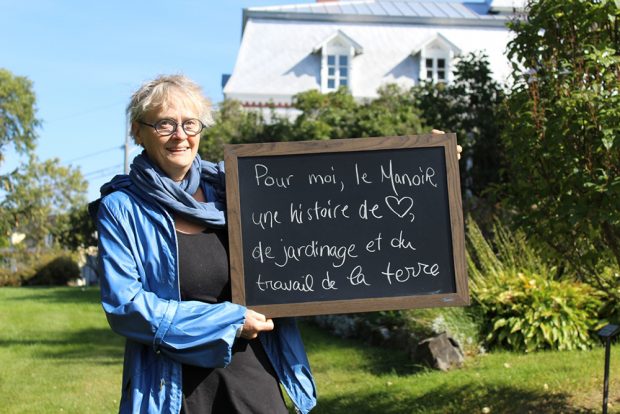 Pour moi, le Manoir
une histoire de ♡,
de jardinage et du
travail de la terre